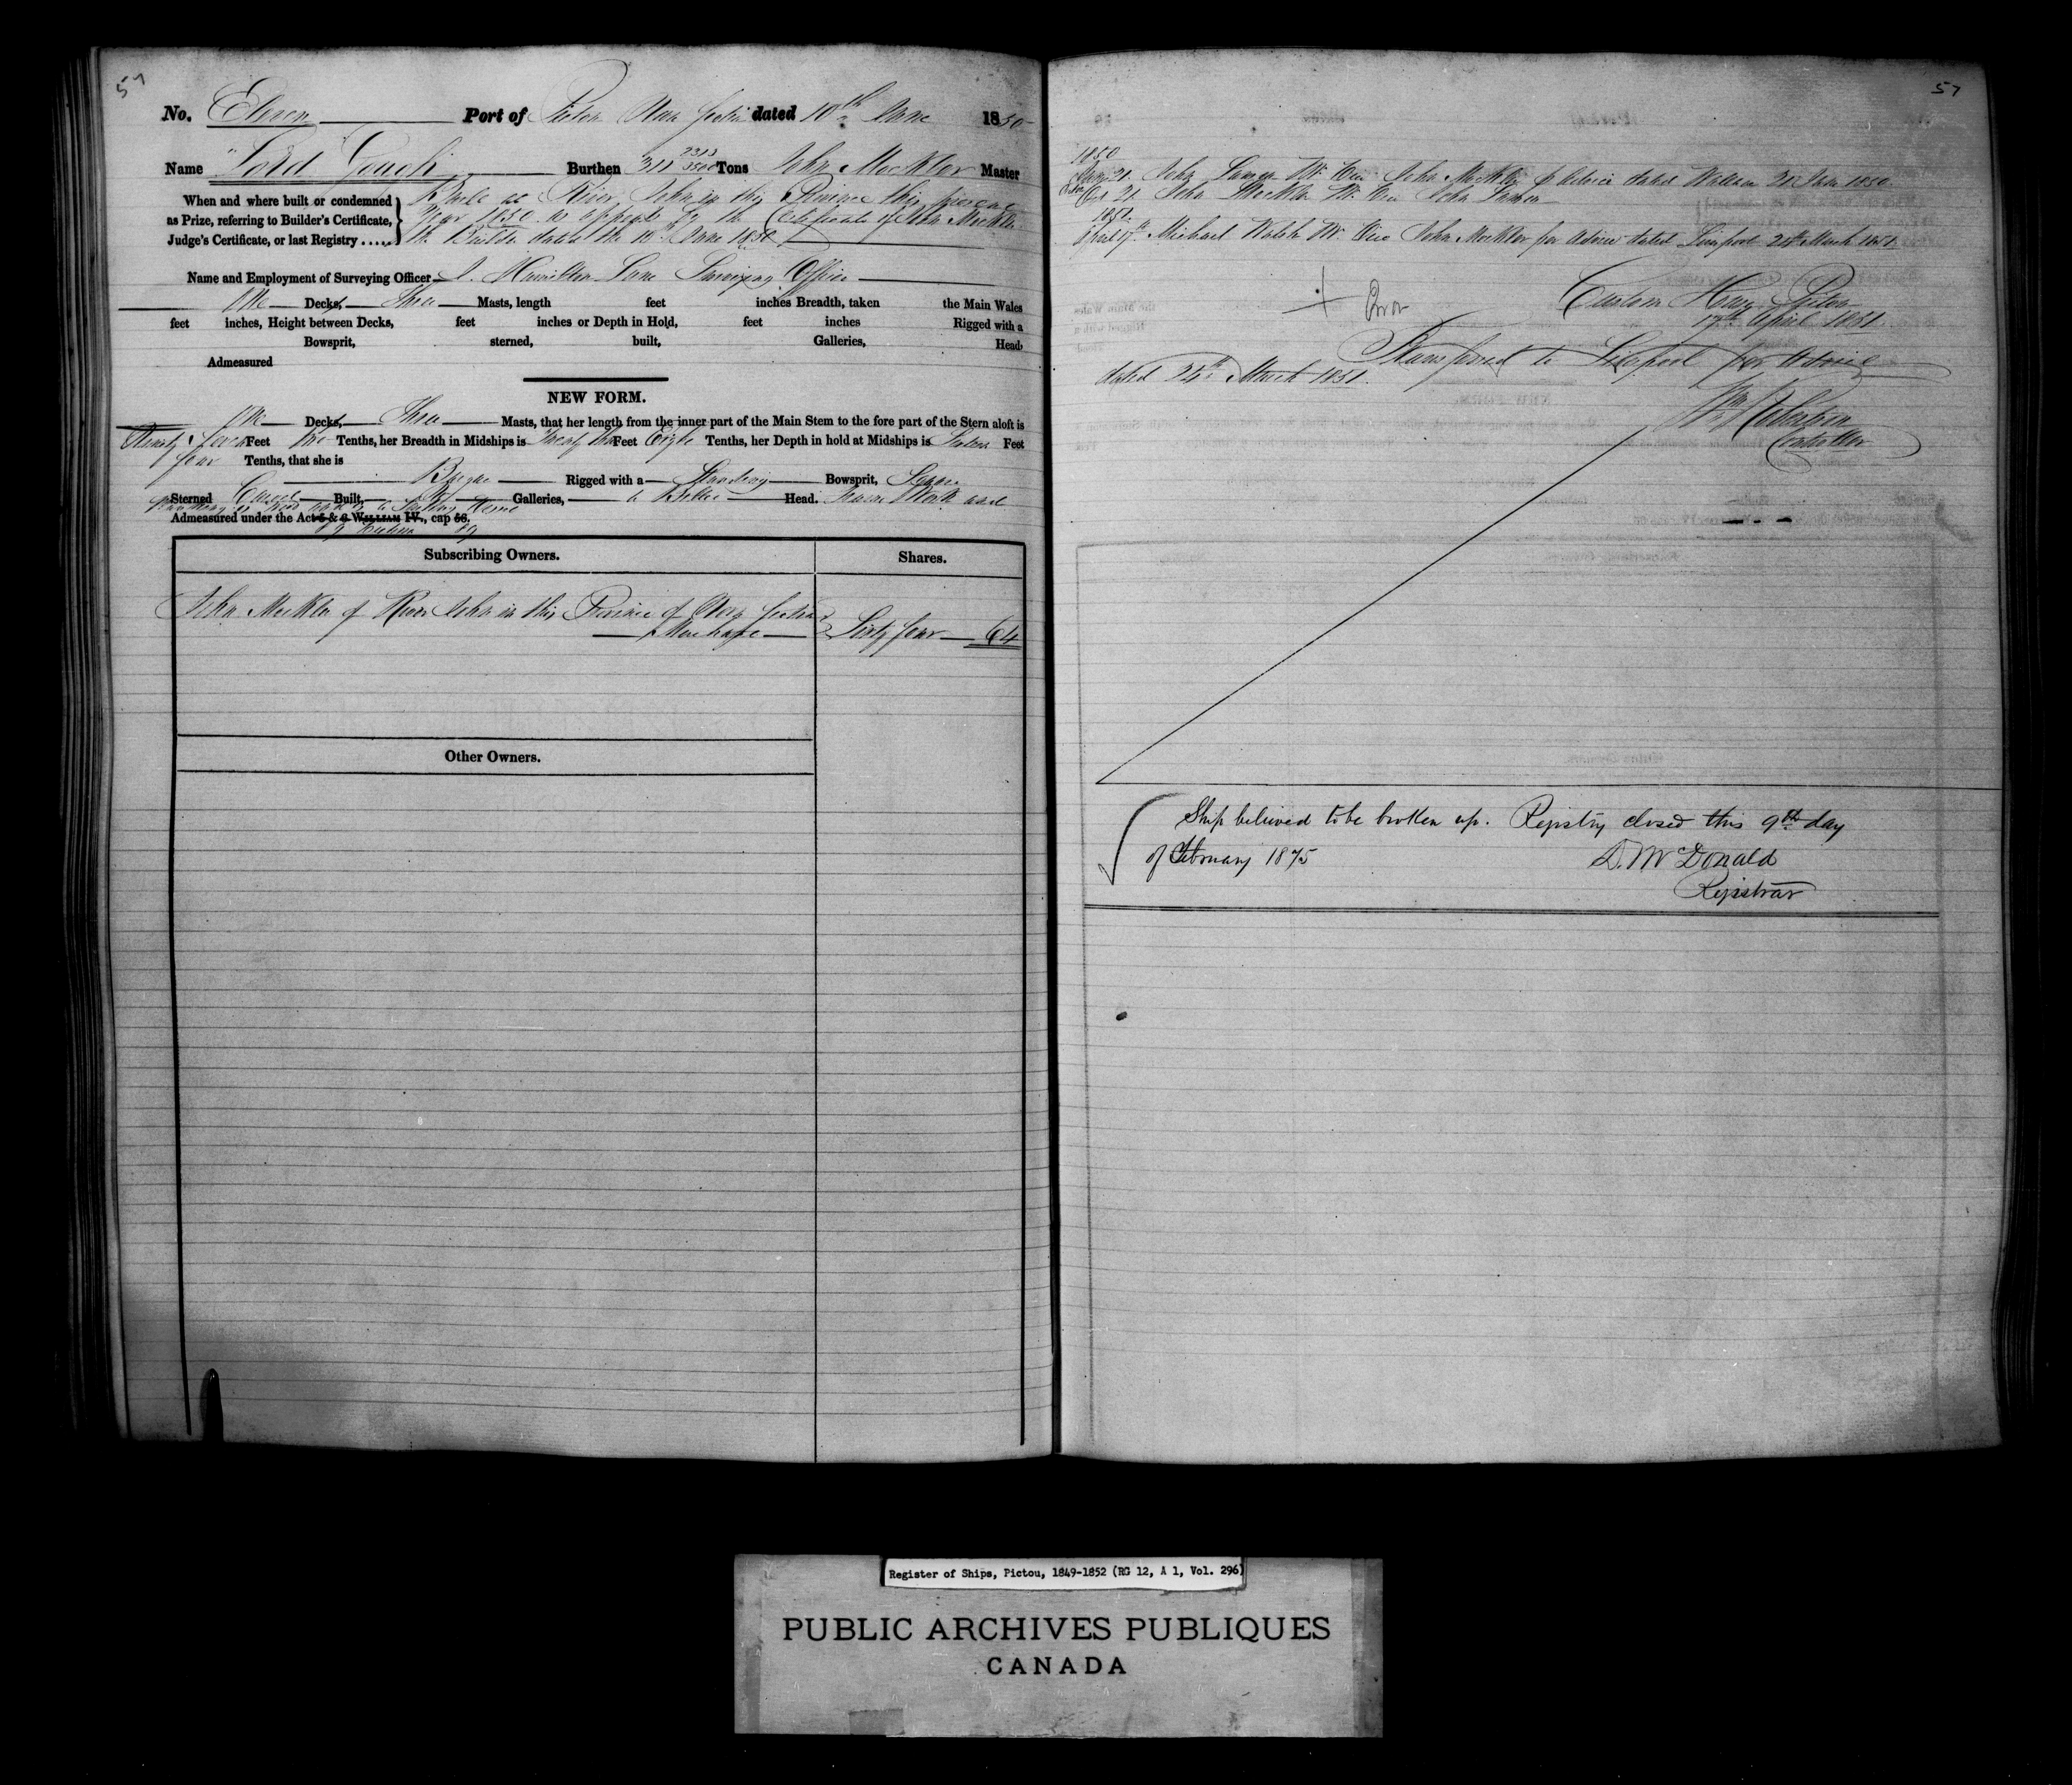 57
No. Eleven Port of Pictou Nova Scotia dated 10th June 1850
Name "Lord Gough" Burthen 311 2313/3500 Tons John Mockler Master
When and where built or condemned
as Prize, referring to Builder's Certificate,
Judge's Certificate, or last Registry .....
at River John in this Province this present
Year 1850 as appears by the Certificate of John Mockler
the Builder dated the 10th June 1850
Name and Employment of Surveying Officer J. Hamilton Lane Surveying Officer
One Decks, Three Masts, length feet inches Breadth, taken the Main Wales
feet inches, Height between Decks, feet inches or Depth in Hold, feet inches Rigged with a
Bowsprit, sterned, built, Galleries, Head,
Admeasured
NEW FORM.
One Decks, Three Masts, that her length from the inner part of the Main Stem to the fore part of the Stern aloft is
Ninety seven Feet two Tenths, her Breadth in Midships is Twenty two Feet Eight Tenths, her Depth in hold at Midships is Feet
four Tenths, that she is
Barque Rigged with a Standing Bowsprit, Square
Sterned Carvel Built, No Galleries, a Billet Head.
Admeasured under the Act 5 & 6 WILLIAM IV., cap 56.
Subscribing Owners. Shares.
John Mockler of River John in this Province of Nova Scotia
Merchant Sixty four 64
Other Owners.
57
1850
June 21. John Mr. vice John Mockler p advice dated Wallace 20 June 1850.
Oct 21 John Mockler Mr. vice John
1851.
April 17th Michael Walsh Mr. vice John Mockler per advice dated Liverpool 24th March 1851
Error
Custom House Pictou
17th April 1851.
Transferred to Liverpool per advice
dated 24th March 1851.
Wm Robertson
Controller
Ship believed to be broken up. Registry closed this 9th day
of February 1875
D. McDonald
Registrar
Register of Ships, Pictou, 1849-1852 (RG 12, A 1, Vol. 296)
PUBLIC ARCHIVES PUBLIQUES
CANADA